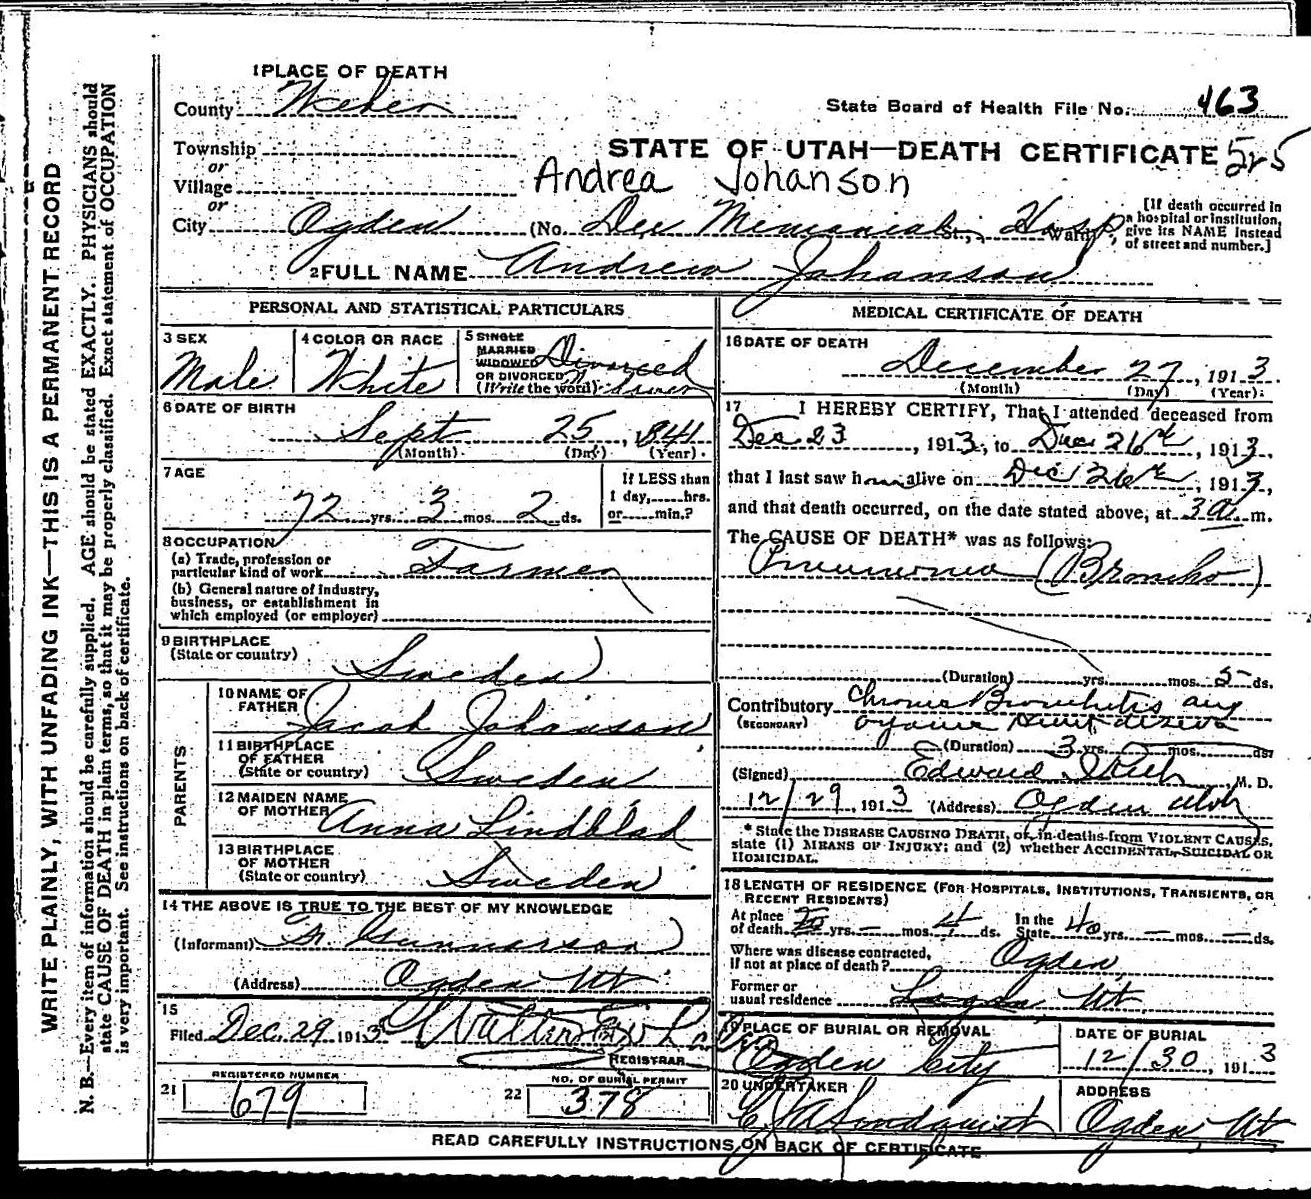 WRITE PLAINLY, WITH UNFADING INK—THIS IS A PERMANENT RECORD
N. B.—Every item of information should be carefully supplied. AGE should be stated EXACTLY. PHYSICIANS should
state CAUSE OF DEATH in plain terms, so that it may be properly classified. Exact statement of OCCUPATION
is very important. See instructions on back of certificate.
1 PLACE OF DEATH
County Weber
State Board of Health File No. 463
Township
STATE OF UTAH—DEATH CERTIFICATE 525
or
Village
Andrea Johanson
or
City Ogden (No. Dee Memorial St., Hosp Ward)
[If death occurred in
a hospital or institution,
give its NAME instead
of street and number.]
2 FULL NAME Andrew Johanson
PERSONAL AND STATISTICAL PARTICULARS
3 SEX
Male
4 COLOR OR RACE
White
5 SINGLE
MARRIED
WIDOWED
OR DIVORCED
(Write the word)
Divorced
6 DATE OF BIRTH
Sept 25, 1841
(Month) (Day) (Year)
7 AGE
72 yrs. 3 mos. 2 ds.
If LESS than
1 day,......hrs.
or......min.?
8 OCCUPATION
(a) Trade, profession or
particular kind of work Farmer
(b) General nature of industry,
business, or establishment in
which employed (or employer)
9 BIRTHPLACE
(State or country)
Sweden
PARENTS
10 NAME OF
FATHER
Jacob Johanson
11 BIRTHPLACE
OF FATHER
(State or country) Sweden
12 MAIDEN NAME
OF MOTHER Anna Lindblad
13 BIRTHPLACE
OF MOTHER
(State or country) Sweden
14 THE ABOVE IS TRUE TO THE BEST OF MY KNOWLEDGE
(Informant) Gunnarson
(Address) Ogden Ut
15
Filed Dec. 29 1913
REGISTRAR
21 REGISTERED NUMBER
679
22 NO. OF BURIAL PERMIT
378
MEDICAL CERTIFICATE OF DEATH
16 DATE OF DEATH
December 27, 1913
(Month) (Day) (Year)
17 I HEREBY CERTIFY, That I attended deceased from
Dec 23, 1913, to Dec 26th, 1913,
that I last saw him alive on Dec 26th, 1913,
and that death occurred, on the date stated above, at 3 a. m.
The CAUSE OF DEATH* was as follows:
Pneumonia (Broncho)
(Duration) yrs. mos. 5 ds.
Contributory Chronic Bronchitis and
(SECONDARY) organic heart disease
(Duration) 3 yrs. mos. ds.
(Signed) Edward M. D.
12/29, 1913 (Address) Ogden Utah
* State the DISEASE CAUSING DEATH, or, in deaths from VIOLENT CAUSES,
state (1) MEANS OF INJURY; and (2) whether ACCIDENTAL, SUICIDAL OR
HOMICIDAL.
18 LENGTH OF RESIDENCE (FOR HOSPITALS, INSTITUTIONS, TRANSIENTS, OR
RECENT RESIDENTS)
At place
of death yrs. — mos. 4 ds.
In the
State 40 yrs. — mos. — ds.
Where was disease contracted,
If not at place of death? Ogden,
Former or
usual residence Logan, Ut
19 PLACE OF BURIAL OR REMOVAL
Ogden City
DATE OF BURIAL
12/30, 1913
20 UNDERTAKER
ADDRESS
Ogden, Ut
READ CAREFULLY INSTRUCTIONS ON BACK OF CERTIFICATE